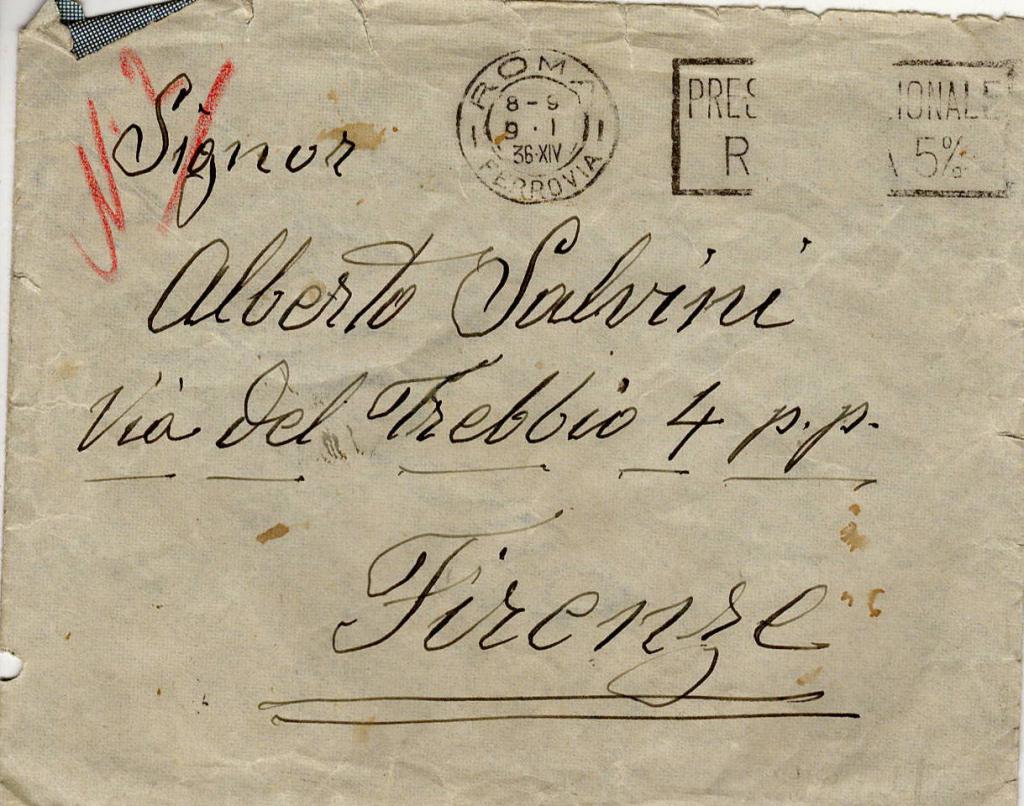 ROMA
8-9
9·1
36·XIV
FERROVIA
PRES IONALE
R 5%
N. 7
Signor
Alberto Salvini
Via del Trebbio 4 p.p.
Firenze